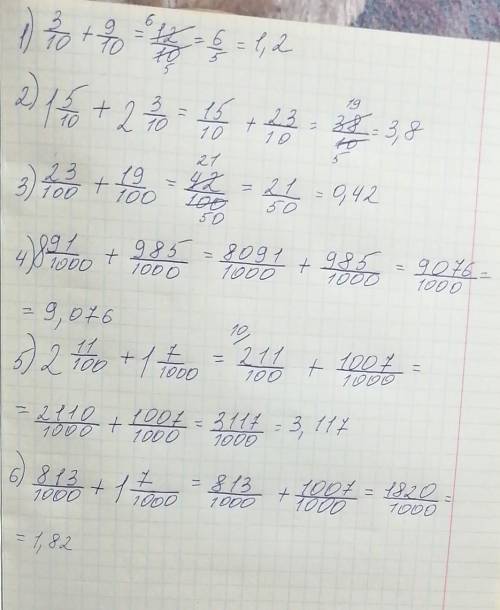 1) 3/10 + 9/10 = 12/10 (6/5) = 6/5 = 1,2
2) 1 5/10 + 2 3/10 = 15/10 + 23/10 = 38/10 (19/5) = 3,8
3) 23/100 + 19/100 = 42/100 (21/50) = 21/50 = 0,42
4) 8 91/1000 + 985/1000 = 8091/1000 + 985/1000 = 9076/1000 =
= 9,076
5) 2 11/100 + 1 7/1000 = 10/ 211/100 + 1007/1000 =
= 2110/1000 + 1007/1000 = 3117/1000 = 3,117
6) 813/1000 + 1 7/1000 = 813/1000 + 1007/1000 = 1820/1000 =
= 1,82